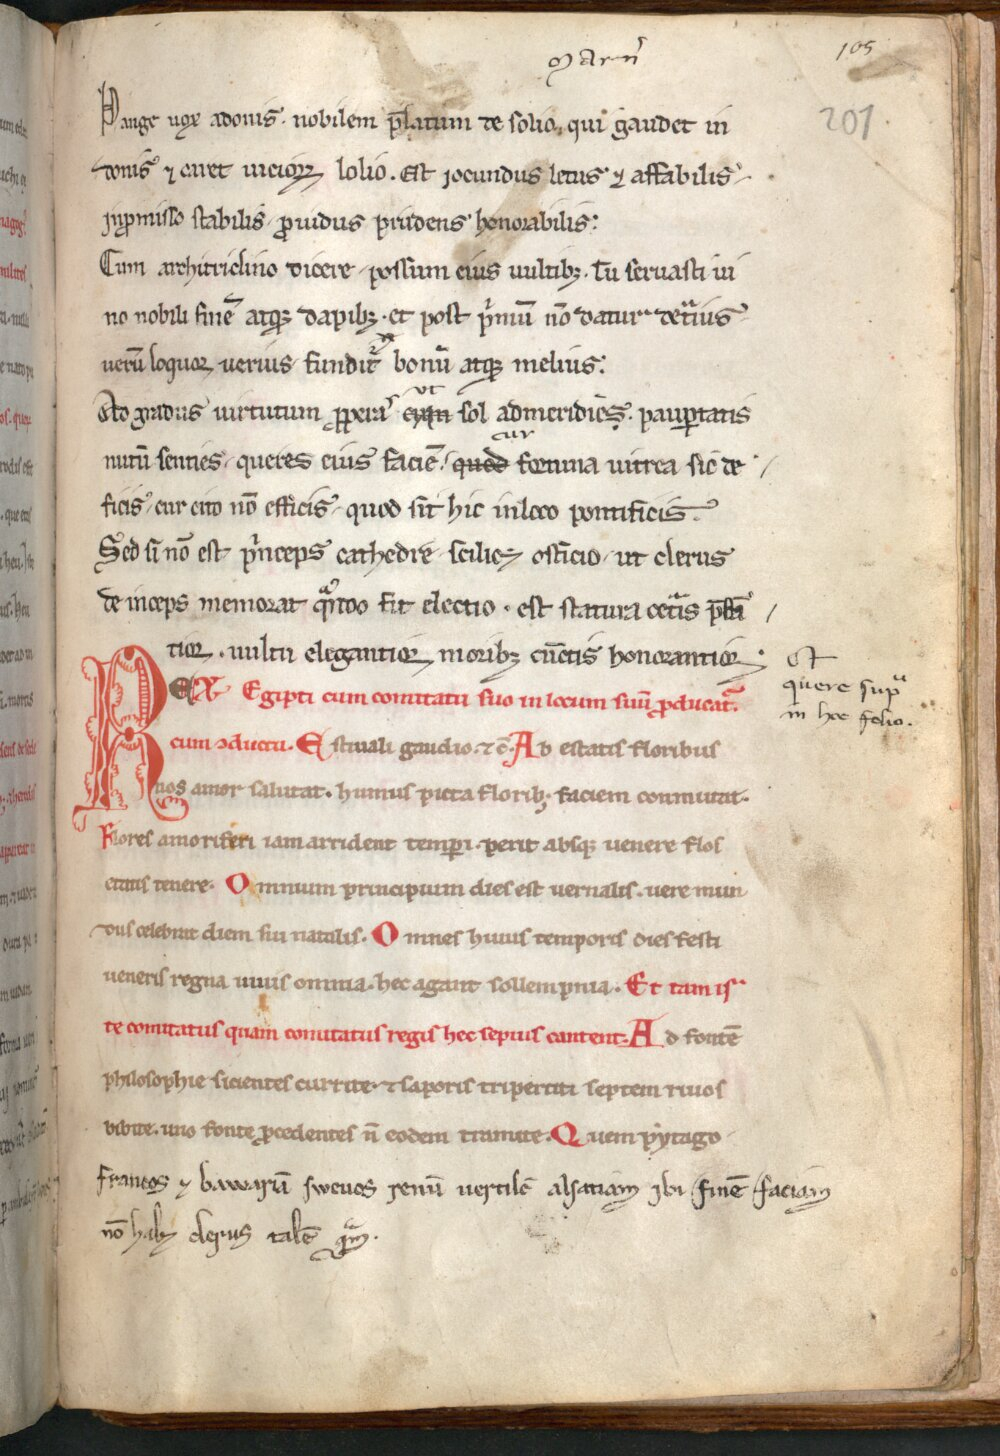 Marn̄
105
201
Pange uox adonis· nobilem p̄latum de solio, qui gaudet in
donis ⁊ caret uicioꝝ lolio. Est jocundus letus ⁊ affabilis·
inp̄misso stabilis· ꝓuidus prudens honorabilis:
Cum architriclino dicere· possum eius uultibꝫ. tu seruasti ui
no nobili finē atqꝫ dapibꝫ· et post p̍mū nō datur det̾ius·
uerū loquor uerius· fundit᷑ bonū atqꝫ melius:
Ato gradus uirtutum ꝓpera᷒ ut sol admeridiēs. pauꝑtatis
nutū senties· queres eius faciē· cur fortuna uitrea sic de
ficis· cur cito nō efficis· quod sit hic inloco pontificis.
Sed si nō est p̍nceps cathedre· scilicꝫ officio· ut clerus
de inceps memorat qͣndo fit electio· est statura cet̾is p̄stā
tior· uultu elegantior moribꝫ cūctis honorantior:
et
quere supͣ
in hoc folio.
REX Egipti cum comitatu suo in locum suū ꝓducat᷑.
cum ↄductu. Estiuali gaudio. ⁊ c̄. Ab estatis floribus
nos amor salutat. humus picta floribꝫ faciem conmutat.
Flores amoriferi iam arrident temꝑi. perit absqꝫ uenere flos
etatis tenere. Omnium principium dies est uernalis. uere mun
dus celebrat diem sui natalis. Omnes huius temporis dies festi
ueneris regna iouis omnia. hec agant sollempnia. Et tam is
te comitatus quam comitatus regis hec sepius cantent. Ad fontē
philosophie sicientes currite. ⁊ saporis tripertiti septem riuos
bibite. uno fonte ꝓcedentes n̄ eodem tramite. Quem pytago
francos ⁊ bawarū swevos renū vertile alsatiam ibi finē faciam
nō habꝫ clerus talē qͣm.